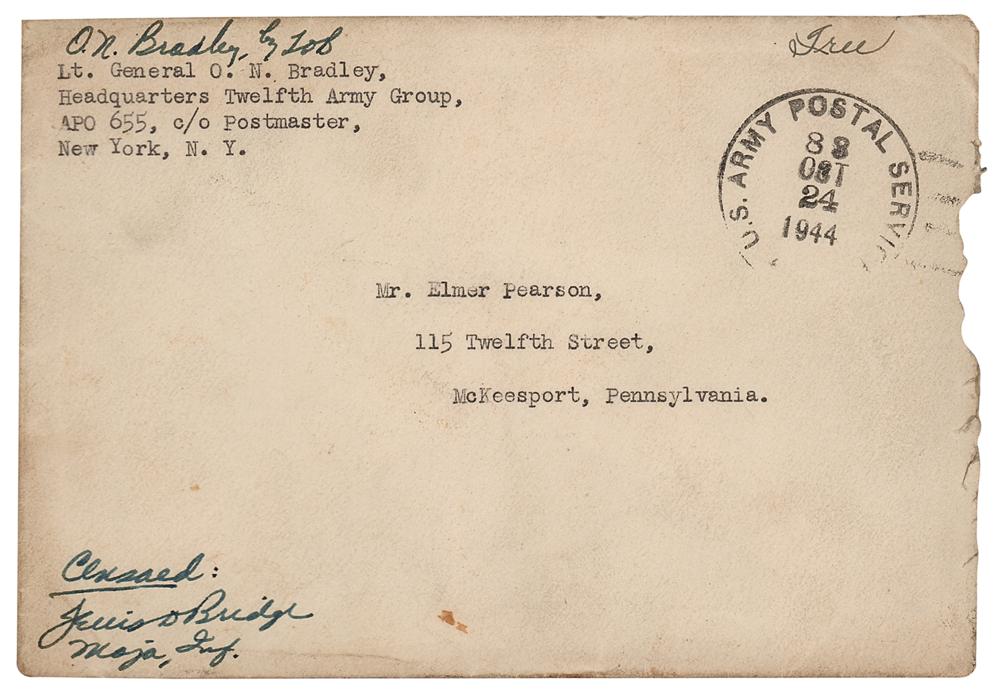 O. N. Bradley, by LDB
Free
Lt. General O. N. Bradley,
Headquarters Twelfth Army Group,
APO 655, c/o Postmaster,
New York, N. Y.
U.S. ARMY POSTAL SERVIC
OCT
24
1944
Mr. Elmer Pearson,
115 Twelfth Street,
McKeesport, Pennsylvania.
Censored:
Lewis D Bridge
Major, Inf.